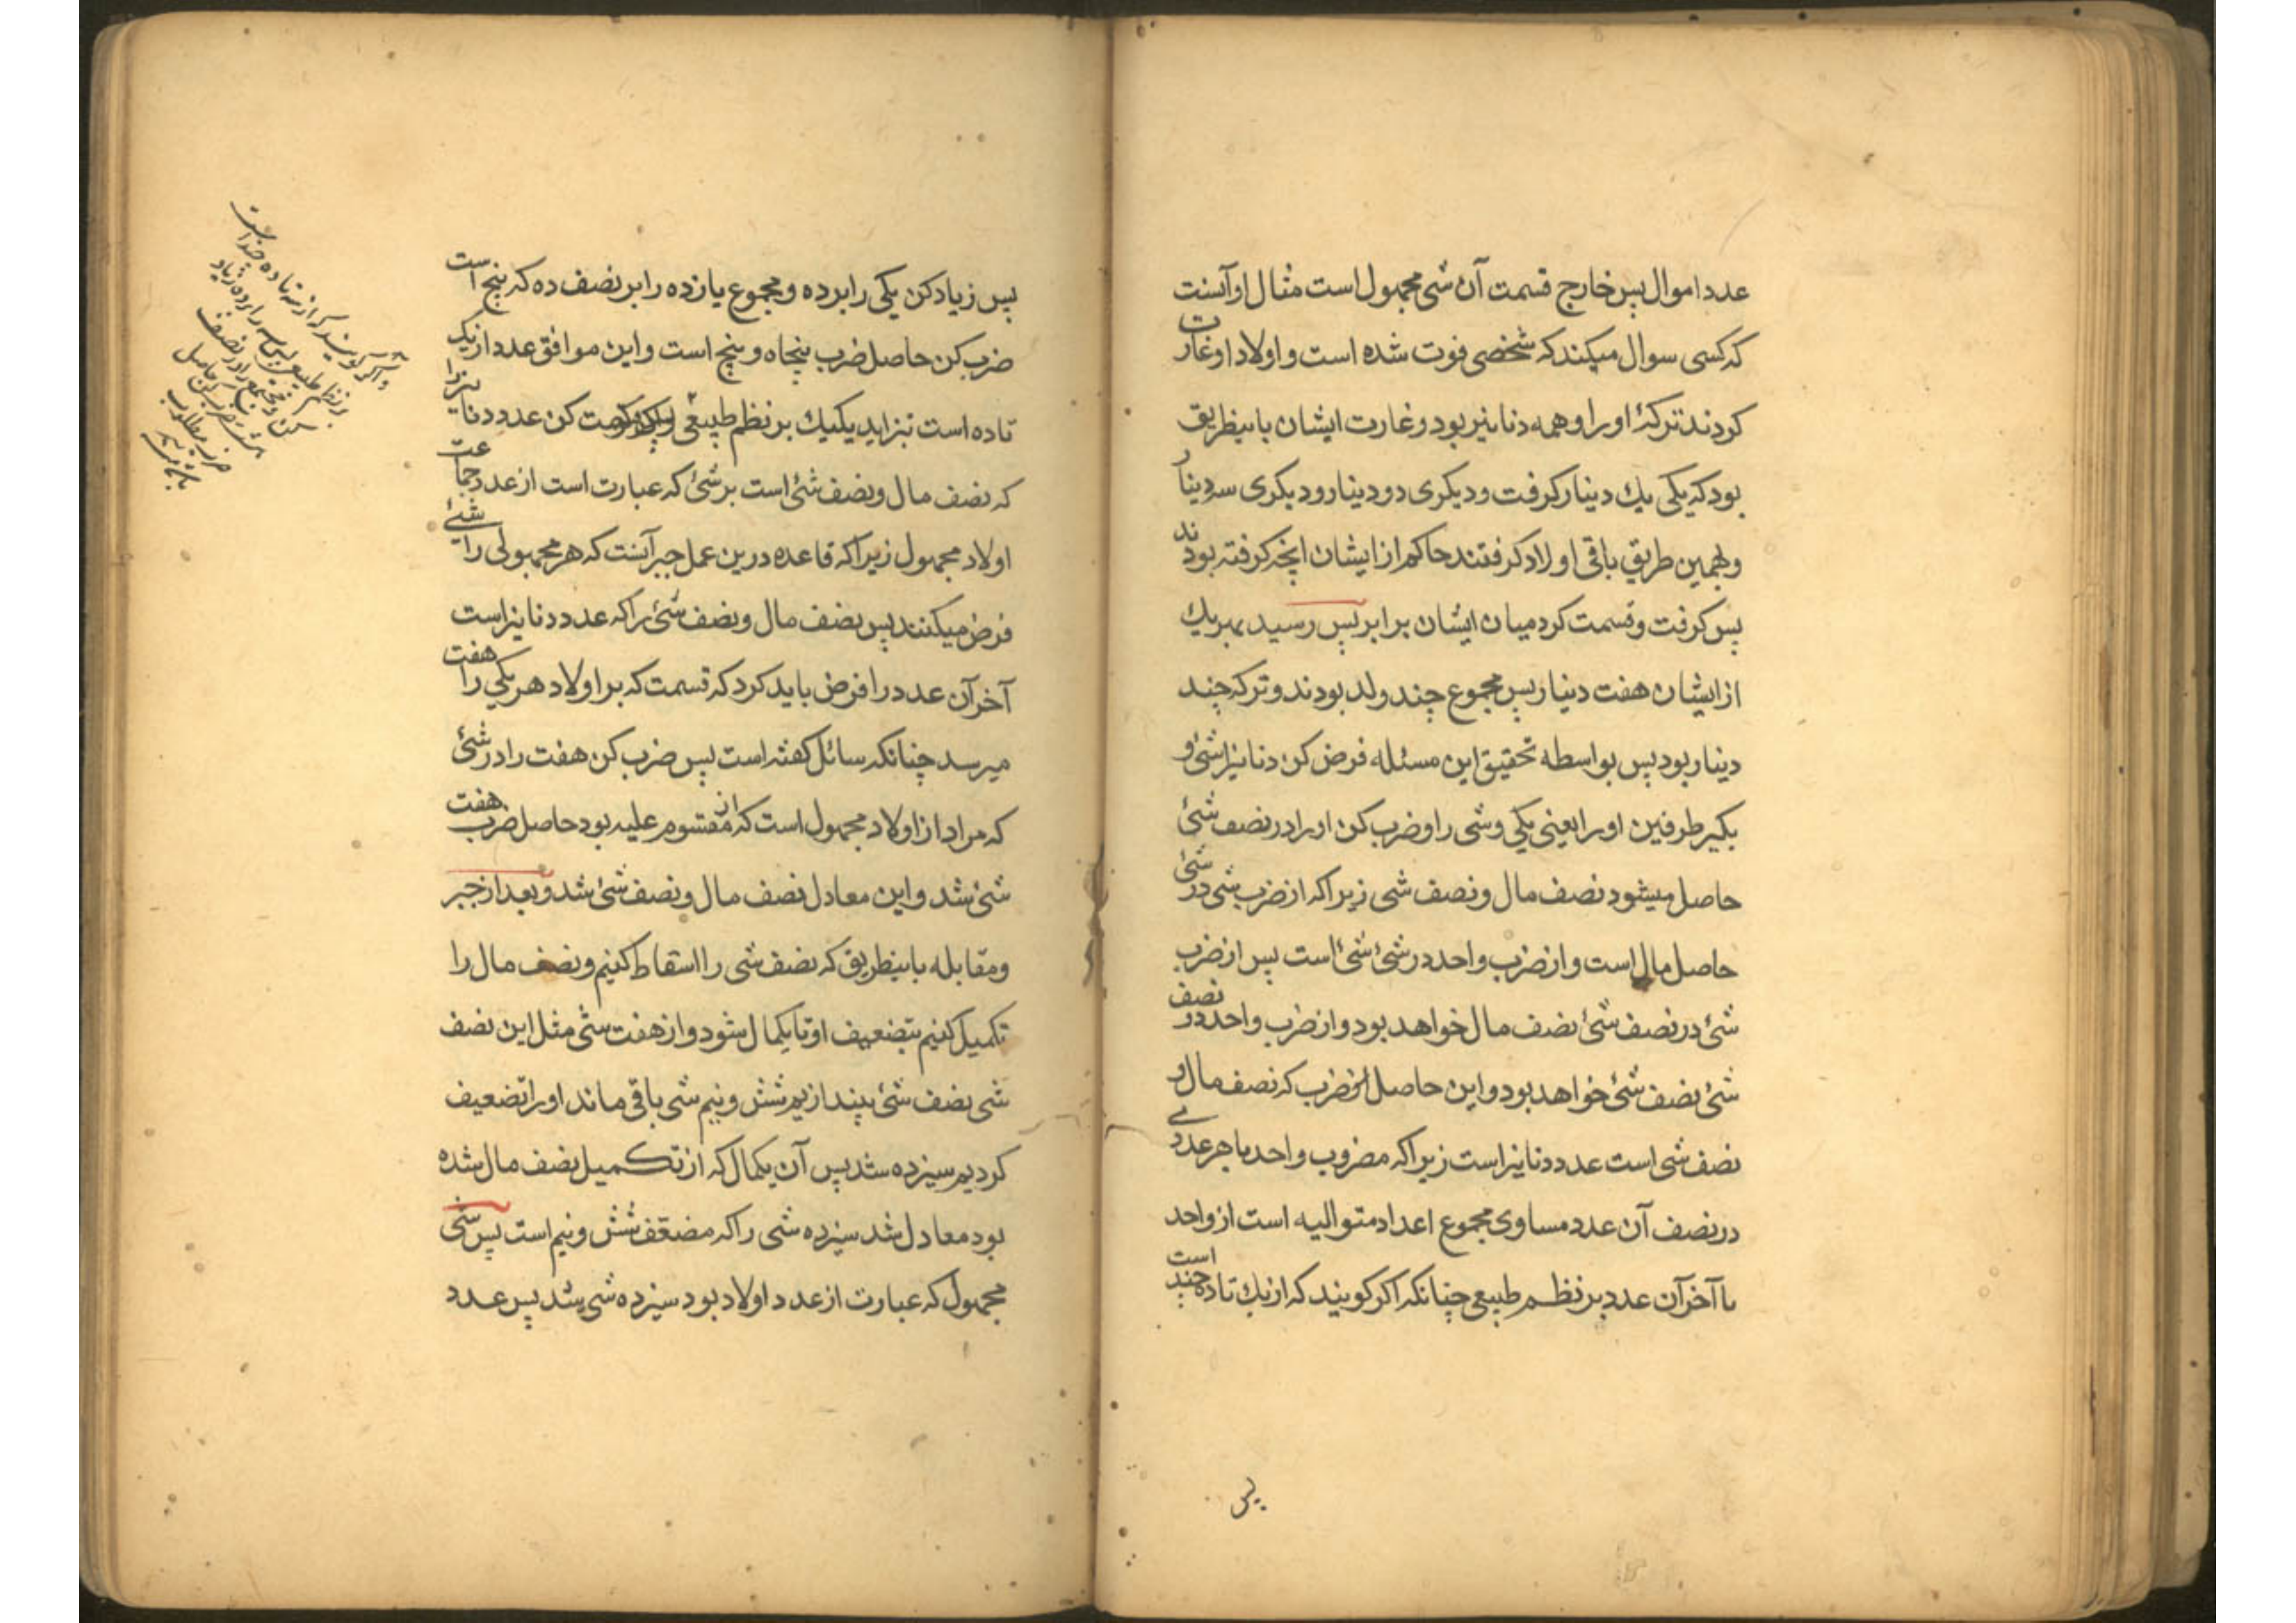 عدد اموال پس خارج قسمت آن شی مجهول است مثال او آنست
که کسی سوال میکند که شخصی فوت شده است و اولاد او غارت
کردند ترکهٔ او را و همه دنانیر بود و غارت ایشان باینطریق
بود که یکی یك دینار کرفت و دیکری دو دینار و دیکری سه دینار
و بهمین طریق باقی اولاد کرفتند حاکم از ایشان انچه کرفته بودند
پس کرفت و قسمت کرد میان ایشان برابر پس رسید بهر یك
از ایشان هفت دینار پس مجموع چند ولد بودند و ترکه چند
دینار بود پس بواسطه تحقیق این مسئله فرض کن دنانیر را شیٔ و
بکیر طرفین او را یعنی یکی و شی را و ضرب کن او را در نصف شیٔ
حاصل میشود نصف مال و نصف شی زیرا که از ضرب شی در شیٔ
حاصل مال است و از ضرب واحد در شیٔ شیٔ است پس از ضرب
شیٔ در نصف شیٔ نصف مال خواهد بود و از ضرب واحد در نصف
شیٔ نصف شیٔ خواهد بود و این حاصل از ضرب که نصف مال و
نصف شی است عدد دنانیر است زیرا که مضروب واحد با هر عددی
در نصف آن عدد مساوی مجموع اعداد متوالیه است از واحد
با آخر آن عدد بر نظم طبیعی چنانکه اکر کویند که از یك تا ده چند است
پس
پس زیاد کن یکی را بر ده و مجموع یازده را بر نصف ده که پنج است
ضرب کن حاصل ضرب پنجاه و پنج است و این موافق عدد از یک
تا ده است بتزاید یکیك بر نظم طبیعی پس قسمت کن عدد دنانیر را
که نصف مال و نصف شیٔ است بر شیٔ که عبارت است از عدد جماعت
اولاد مجهول زیرا که قاعده درین عمل جبر آنست که هر مجهولی را شیٔ
فرض میکنند پس نصف مال و نصف شیٔ را که عدد دنانیر است
آخر آن عدد را فرض باید کرد که قسمت که بر اولاد هر یکی را هفت
میرسد چنانکه سائل کفته است پس ضرب کن هفت را در شیٔ
که مراد از اولاد مجهول است که از مقسوم علیه بود حاصل ضرب هفت
شیٔ شد و این معادل نصف مال و نصف شیٔ شد و بعد از جبر
و مقابله باینطریق که نصف شی را اسقاط کنیم و نصف مال را
تکمیل کنیم بتضعیف او تا یکمال شود و از هفت شی مثل این نصف
شی نصف شیٔ بیندازیم شش و نیم شی باقی ماند او را تضعیف
کردیم سیزده شد پس آن یکمال که از تکمیل نصف مال شده
بود معادل شد سیزده شی را که مضعّف شش و نیم است پس شی
مجهول که عبارت از عدد اولاد بود سیزده شی شد پس عدد
و اکر کویند که از سه تا ده چند است